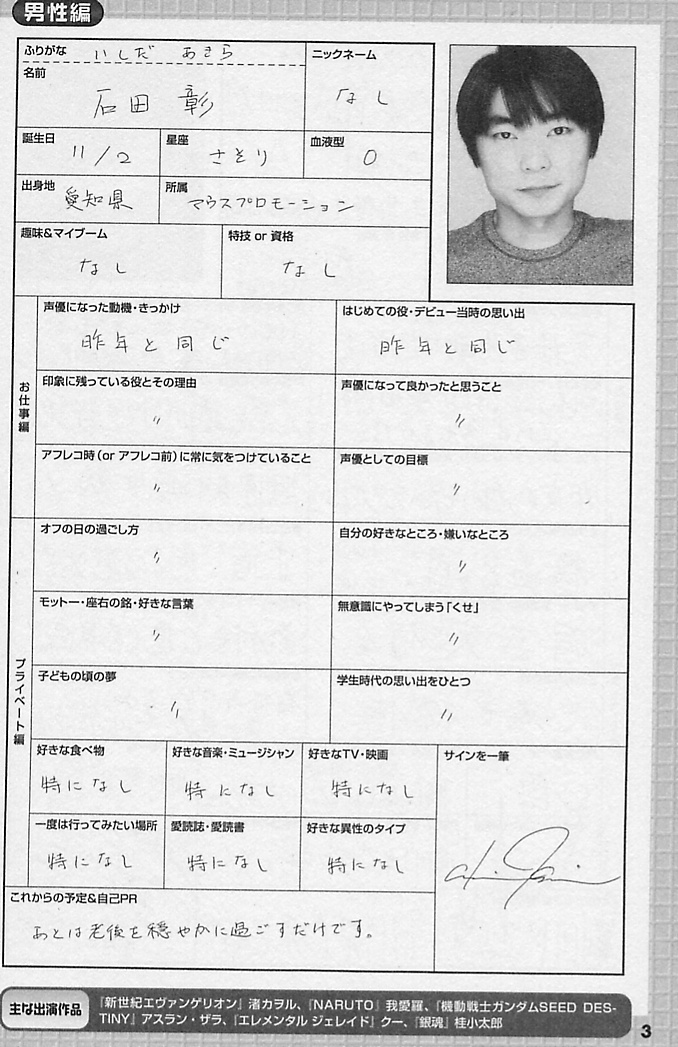 男性編
ふりがな いしだ あきら
名前
石田 彰
ニックネーム
なし
誕生日
11/2
星座
さそり
血液型
O
出身地
愛知県
所属
マウスプロモーション
趣味&マイブーム
なし
特技 or 資格
なし
お仕事編
声優になった動機・きっかけ
昨年と同じ
はじめての役・デビュー当時の思い出
昨年と同じ
印象に残っている役とその理由
〃
声優になって良かったと思うこと
〃
アフレコ時(or アフレコ前)に常に気をつけていること
〃
声優としての目標
〃
プライベート編
オフの日の過ごし方
〃
自分の好きなところ・嫌いなところ
〃
モットー・座右の銘・好きな言葉
〃
無意識にやってしまう「くせ」
〃
子どもの頃の夢
〃
学生時代の思い出をひとつ
〃
好きな食べ物
特になし
好きな音楽・ミュージシャン
特になし
好きなTV・映画
特になし
サインを一筆
一度は行ってみたい場所
特になし
愛読誌・愛読書
特になし
好きな異性のタイプ
特になし
これからの予定&自己PR
あとは老後を穏やかに過ごすだけです。
主な出演作品
『新世紀エヴァンゲリオン』渚カヲル、『NARUTO』我愛羅、『機動戦士ガンダムSEED DES-
TINY』アスラン・ザラ、『エレメンタル ジェレイド』クー、『銀魂』桂小太郎
3